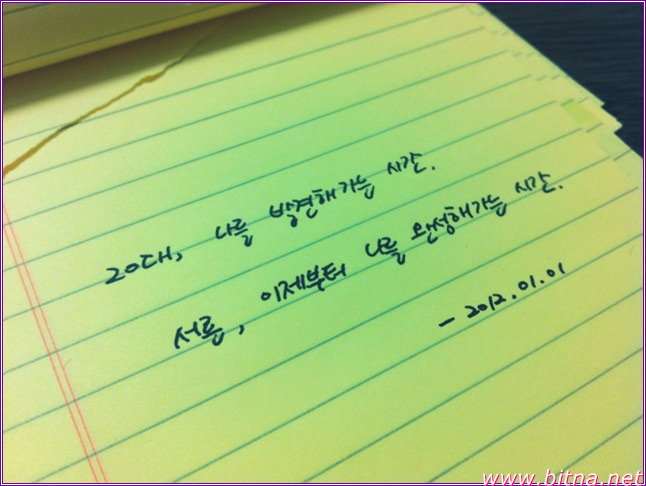 20대, 나를 발견해가는 시간.
서른, 이제부터 나를 완성해가는 시간.
- 2012.01.01
www.bitna.net